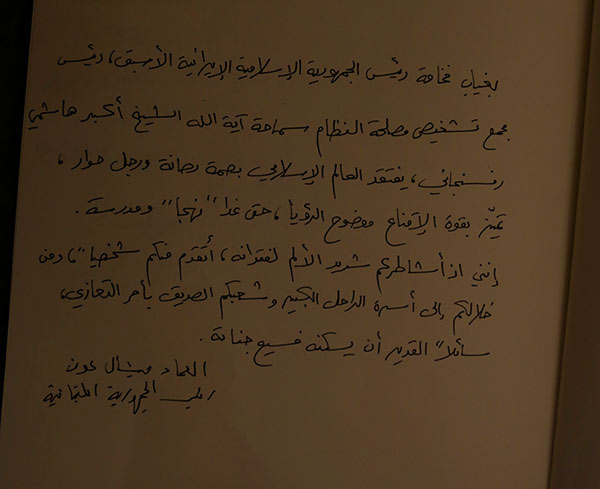 بغياب فخامة رئيس الجمهورية الإسلامية الإيرانية الأسبق، رئيس
مجمع تشخيص مصلحة النظام سماحة آية الله الشيخ أكبر هاشمي
رفسنجاني، يفتقد العالم الإسلامي بصمة رصانة ورجل حوار،
تميّز بقوة الإقناع ووضوح الرؤيا، حتى غدا "نهجاً" ومدرسة.
إنني اذ أشاطركم شديد الألم لفقدانه، أتقدم منكم شخصياً، ومن
خلالكم إلى أسرة الراحل الكبير وشعبكم الصديق بأحر التعازي،
سائلاً القدير أن يسكنه فسيح جنانه.
العماد ميشال عون
رئيس الجمهورية اللبنانية